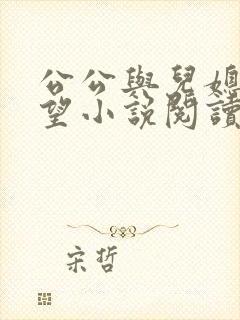 公公與兒媳
望小說閱讀
宋哲